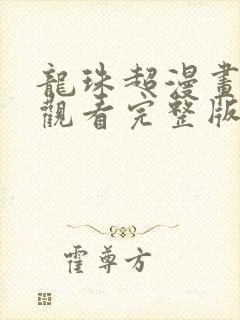 龍珠超漫畫
觀看完整版
霍尊方